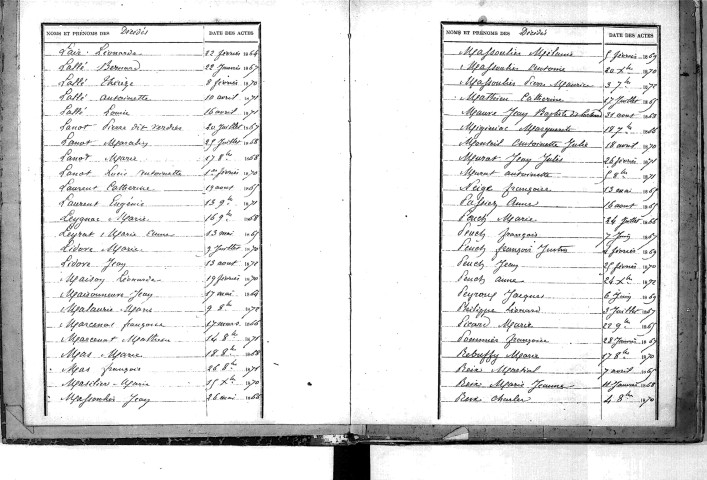 NOMS ET PRÉNOMS DES Décédés DATE DES ACTES
Lair Léonarde 22 février 1866
Laffé Bernard 22 Janvier 1867
Laffé Thérèze 8 février 1870
Laffé Antoinette 10 avril 1871
Laffé Louise 16 avril 1871
Lanot Pierre dit Verdier 20 Juillet 1867
Lanot 25 Juillet 1868
Lanot Marie 17 8bre 1868
Lanot Lucie Antoinette 1er février 1870
Laurent Catherine 19 aout 1865
Laurent Eugénie 13 9bre 1871
Leygnac Marie 16 9bre 1868
Leyrat Marie Anne 13 mai 1865
Lidove Marie 9 Juillet 1870
Lidove Jean 13 aout 1871
Maison Léonarde 19 février 1870
Maisonneuve Jean 17 mai 1869
Malaurie Marie 9 8bre 1871
Marcenat françoise 17 mars 1866
Marcenat Mathieu 14 8bre 1871
Mas Marie 18 8bre 1868
Mas françois 26 8bre 1871
Marie 15 Xbre 1870
Massoubre Jean 26 mai 1866
NOMS ET PRÉNOMS DES Décédés DATE DES ACTES
Massoubre Mélanie 5 février 1869
Massoubre Antoine 20 Xbre 1870
Massoubre Pierre Maurice 3 7bre 1871
Mathieu Catherine 17 Juillet 1865
Maure Jean Baptiste 31 aout 1868
Marguerite 18 7bre 1866
Monteil Antoinette Julie 18 avril 1870
Murat Jean Jules 26 février 1871
Murat Antoinette 5 8bre 1871
Neige françoise 13 mai 1865
Anne 16 aout 1865
Peuch Marie 24 Juillet 1866
Peuch françois 7 Juin 1867
Peuch françois Justin 2 février 1869
Peuch Jean 25 février 1870
Peuch Anne 24 Xbre 1871
Peyroux Jacques 6 Juin 1869
Philippe Léonard 3 Juillet 1867
Picard Marie 22 9bre 1865
Pommier françoise 28 Janvier 1865
Rebuffy Marie 17 8bre 1870
Reix Martial 7 avril 1865
Reix Marie Jeanne 11 Janvier 1868
Reix Charles 4 8bre 1870